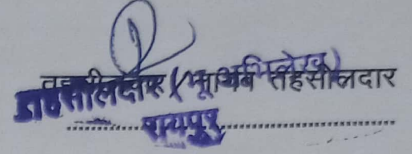 तहसीलदार / नायब तहसीलदार
तहसीलदार (भू-अभिलेख)
रायपुर